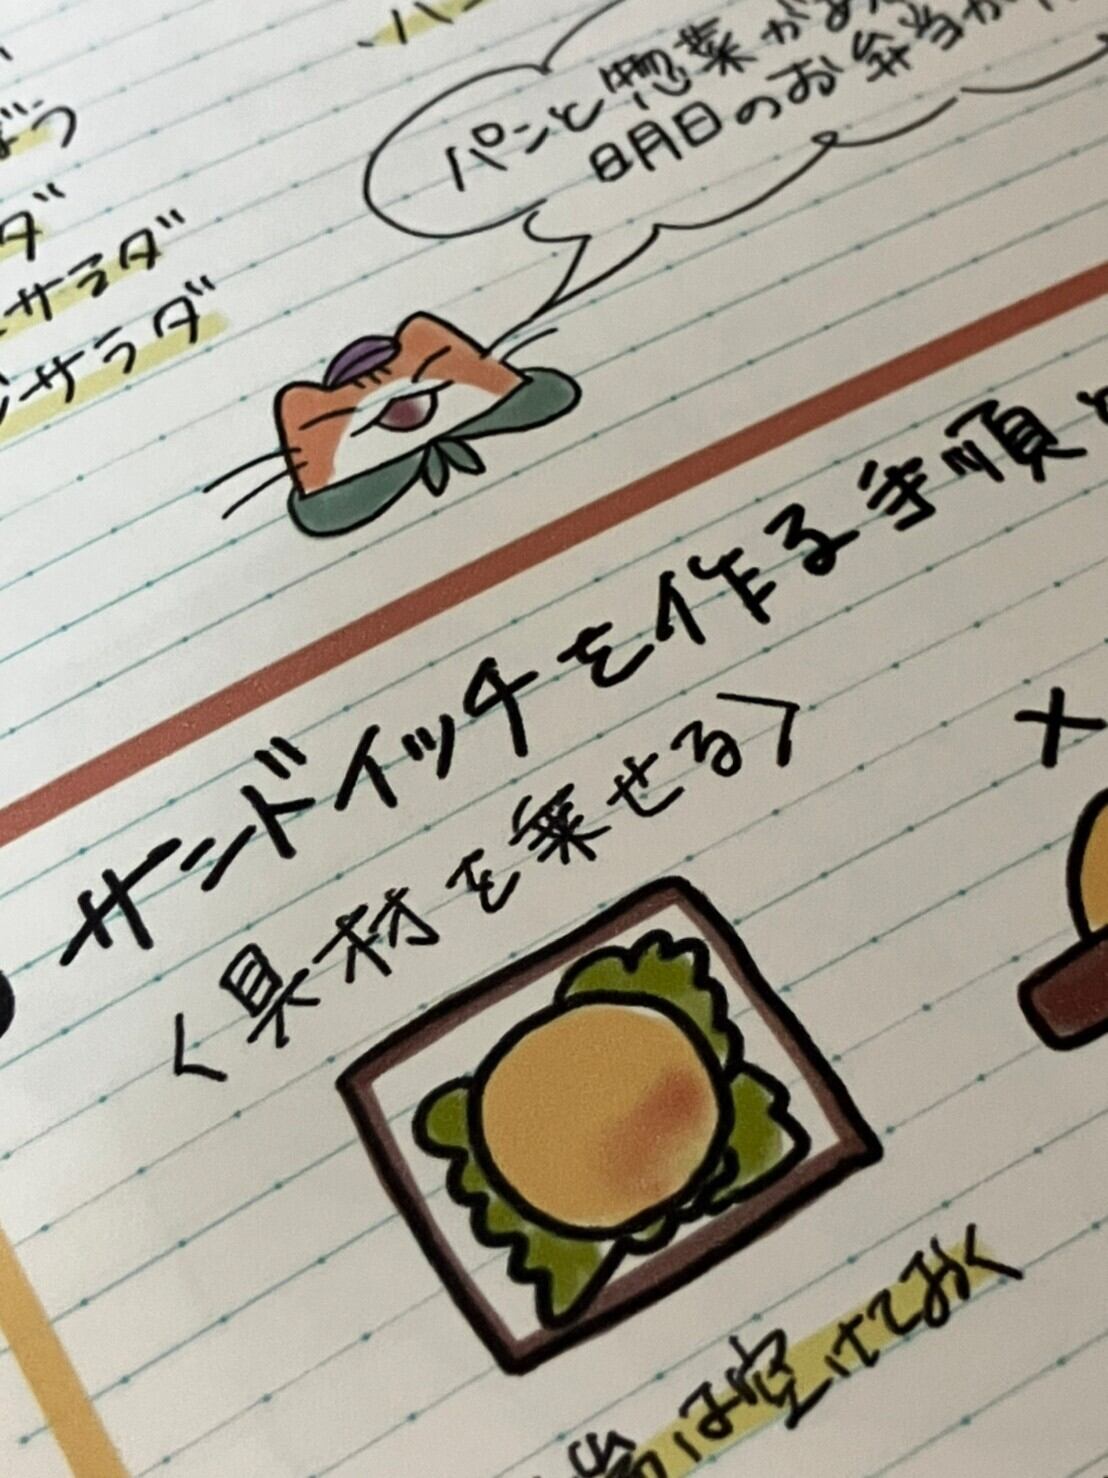 ダ
サラダ
サラダ
パンと惣菜があ
明日のお弁当が
サンドイッチを作る手順
<具材を乗せる>
は空けておく